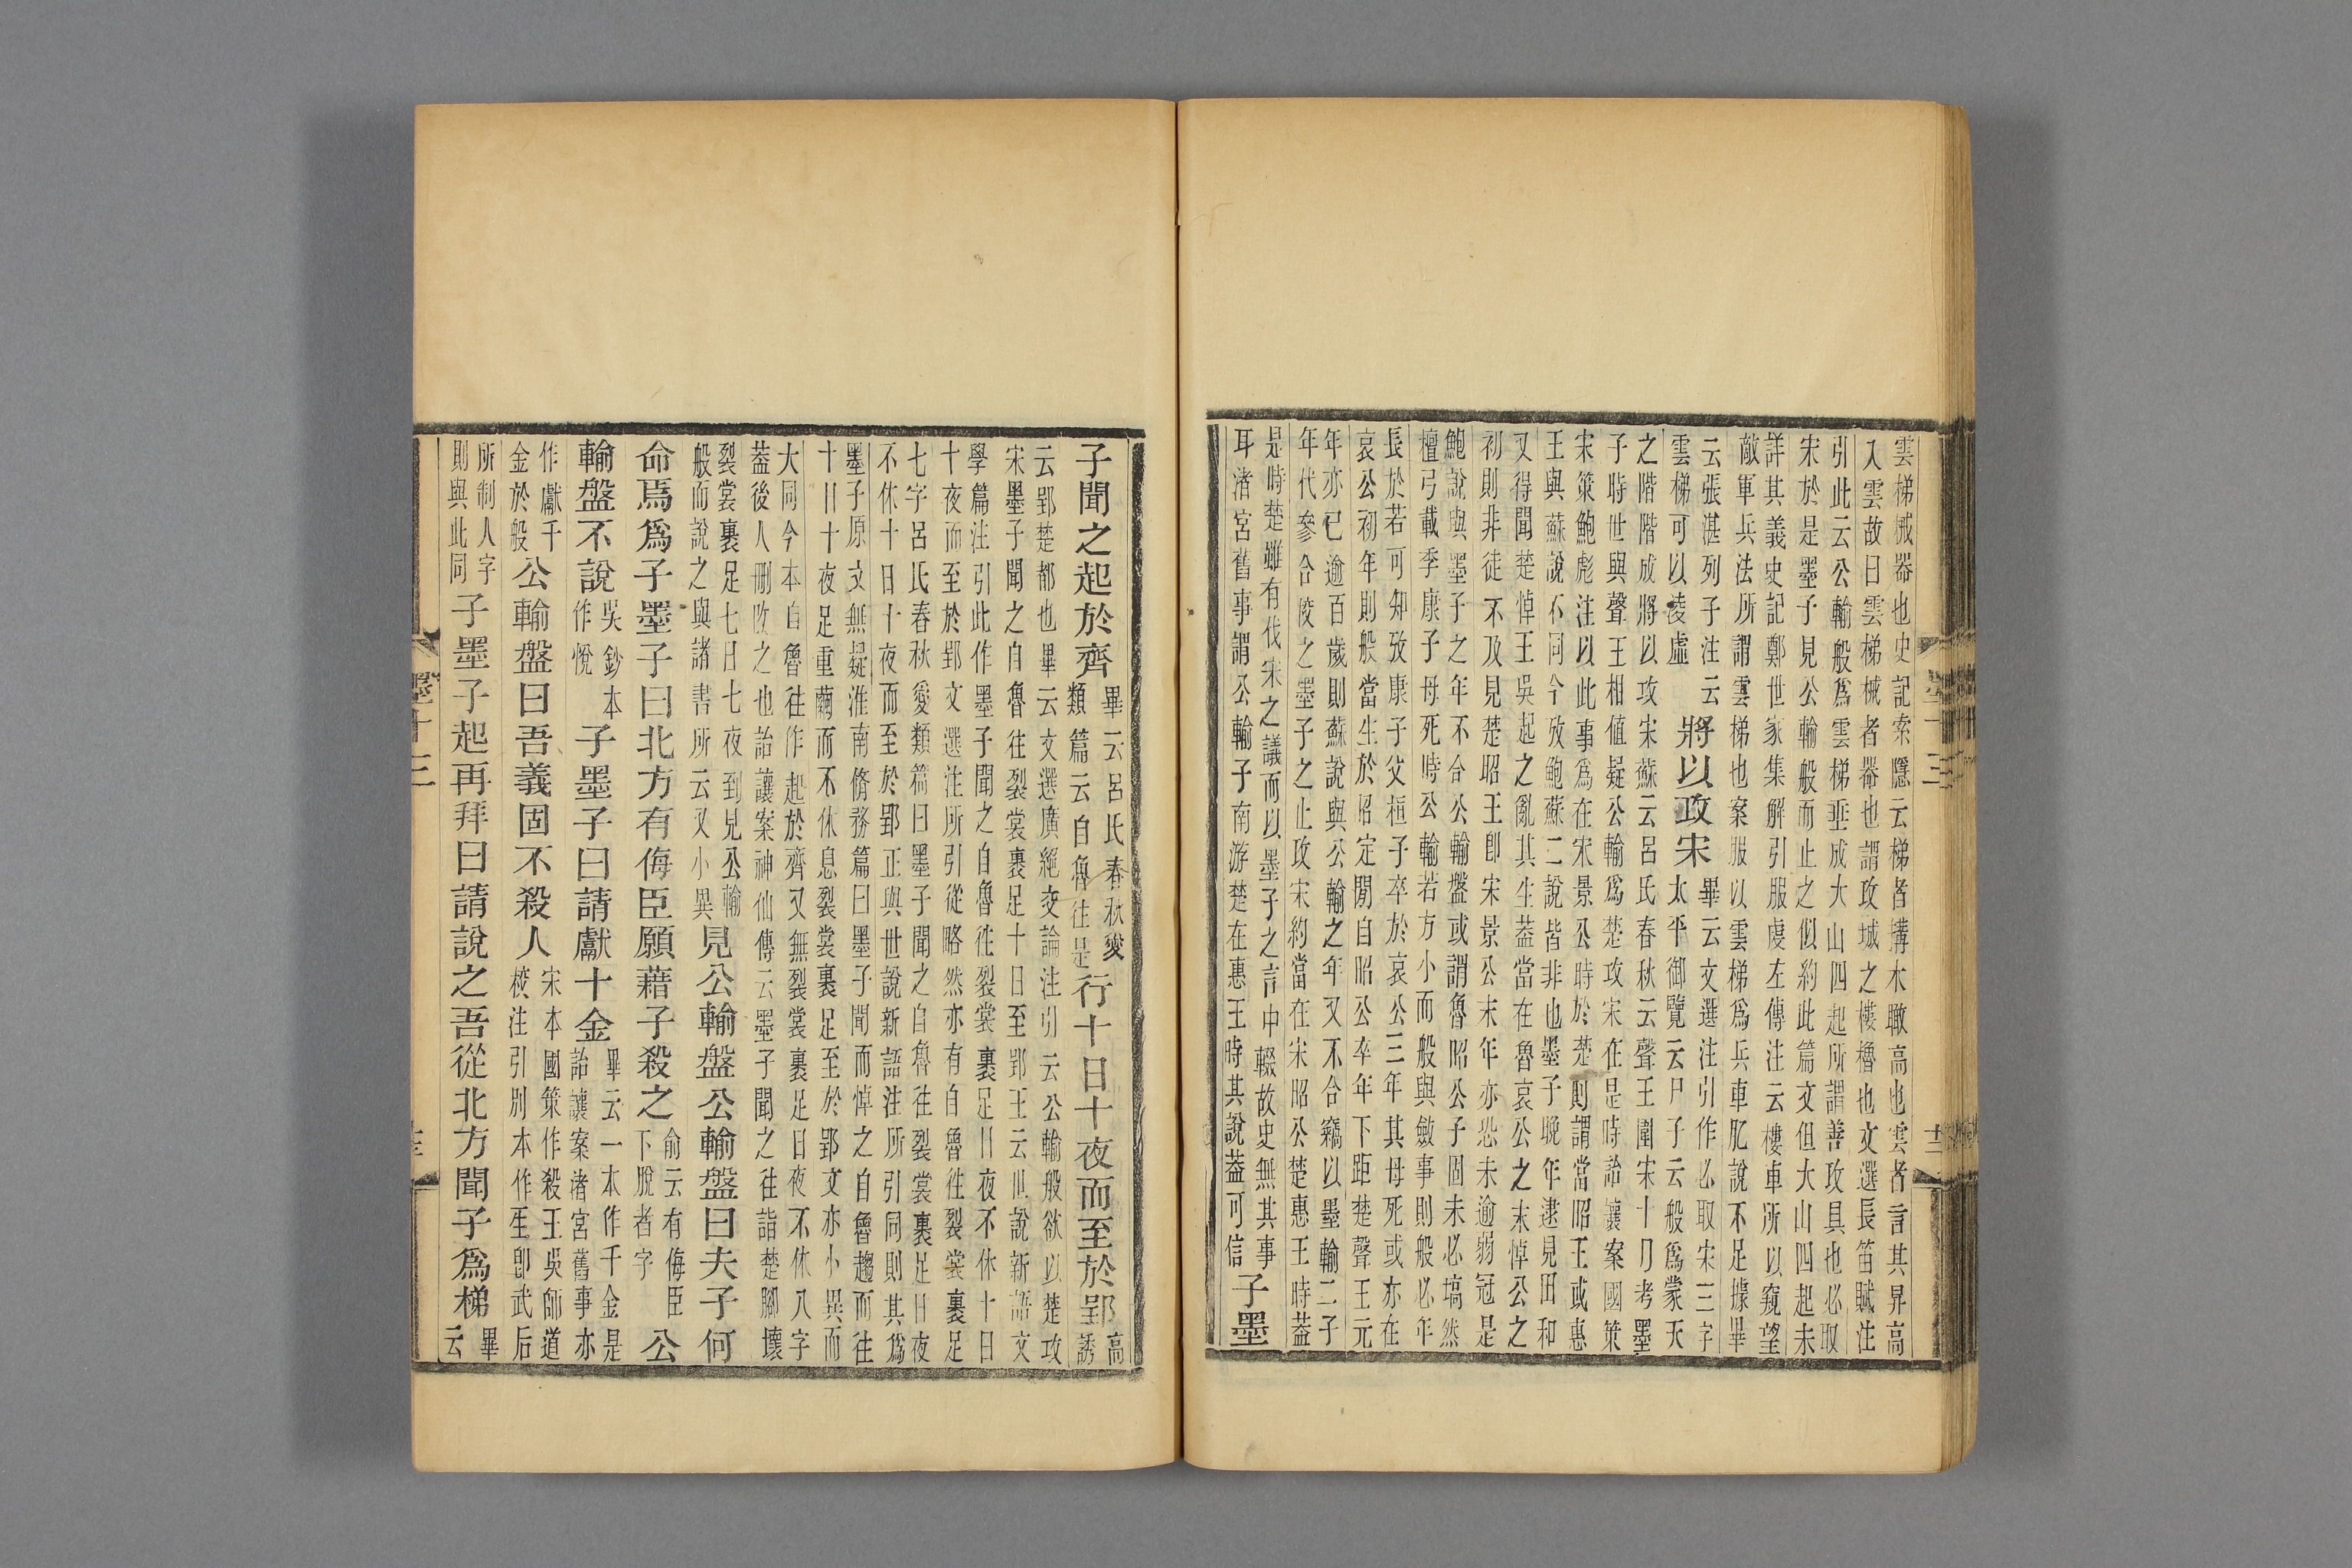 雲梯械器也史記索隱云梯者構木瞰高也雲者言其昇高
入雲故曰雲梯械者器也謂攻城之樓櫓也文選長笛賦注
引此云公輸般爲雲梯垂成大山四起所謂善攻具也必取
宋於是墨子見公輸般而止之似約此篇文但大山四起未
詳其義史記鄭世家集解引服虔左傳注云樓車所以窺望
敵軍兵法所謂雲梯也案服以雲梯爲兵車肊說不足據畢
云張湛列子注云
雲梯可以淩虛
將以攻宋
畢云文選注引作必取宋三字
太平御覽云尸子云般爲蒙天
之階階成將以攻宋蘇云呂氏春秋云聲王圍宋十月考墨
子時世與聲王相值疑公輸爲楚攻宋在是時詒讓案國策
宋策鮑彪注以此事爲在宋景公時於楚則謂當昭王或惠
王與蘇說不同今攷鮑蘇二說皆非也墨子晚年逮見田和
又得聞楚悼王吳起之亂其生葢當在魯哀公之末悼公之
初則非徒不及見楚昭王卽宋景公末年亦恐未逾弱冠是
鮑說與墨子之年不合公輸盤或謂魯昭公子固未必塙然
檀弓載季康子母死時公輸若方小而般與斂事則般必年
長於若可知攷康子父桓子卒於哀公三年其母死或亦在
哀公初年則般當生於昭定閒自昭公卒年下距楚聲王元
年亦已逾百歲則蘇說與公輸之年又不合竊以墨輸二子
年代參合之墨子之止攻宋約當在宋昭公楚惠王時葢
是時楚雖有伐宋之議而以墨子之言中輟故史無其事
耳渚宮舊事謂公輸子南游楚在惠王時其說葢可信
子墨
子聞之起於齊
畢云呂氏春秋愛
類篇云自魯往是
行十日十夜而至於郢
高
誘
云郢楚都也畢云文選廣絕交論注引云公輸般欲以楚攻
宋墨子聞之自魯往裂裳裹足十日至郢王云世說新語文
學篇注引此作墨子聞之自魯往裂裳裹足日夜不休十日
十夜而至於郢文選注所引從略然亦有自魯往裂裳裹足
七字呂氏春秋愛類篇曰墨子聞之自魯往裂裳裹足日夜
不休十日十夜而至於郢正與世說新語注所引同則其爲
墨子原文無疑淮南脩務篇曰墨子聞而悼之自魯趨而往
十日十夜足重繭而不休息裂裳裹足至於郢文亦小異而
大同今本自魯往作起於齊又無裂裳裹足日夜不休八字
葢後人刪改之也詒讓案神仙傳云墨子聞之往詣楚腳壞
裂裳裹足七日七夜到見公輸
般而說之與諸書所云又小異
見公輸盤公輸盤曰夫子何
命焉爲子墨子曰北方有侮臣願藉子殺之
俞云有侮臣
下脫者字
公
輸盤不說
吳鈔本
作悅
子墨子曰請獻十金
畢云一本作千金是
詒讓案渚宮舊事亦
作獻千
金於般
公輸盤曰吾義固不殺人
宋本國策作殺王吳師道
校注引別本作𤯔卽武后
所制人字
則與此同
子墨子起再拜曰請說之吾從北方聞子爲梯
畢
云
墨十三